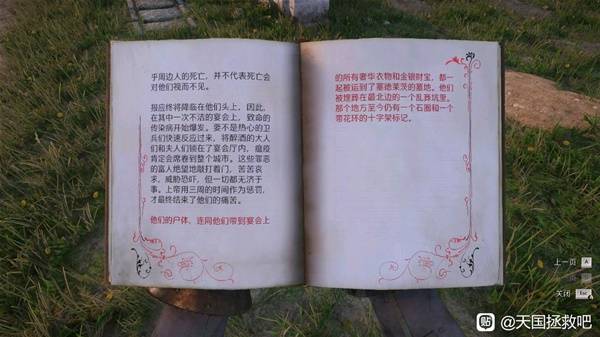 乎周边人的死亡，并不代表死亡会
对他们视而不见。
报应终将降临在他们头上，因此，
在其中一次不洁的宴会上，致命的
传染病开始爆发。要不是热心的卫
兵们快速反应过来，将醉酒的大人
们和夫人们锁在了宴会厅内，瘟疫
肯定会席卷到整个城市。这些罪恶
的富人绝望地敲打着门，苦苦哀
求，威胁恐吓，但一切都无济于
事。上帝用三周的时间作为惩罚，
才最终结束了他们的痛苦。
他们的尸体、连同他们带到宴会上
的所有奢华衣物和金银财宝，都一
起被运到了塞德莱茨的墓地。他们
被埋葬在最北边的一个乱葬坑里。
那个地方至今仍有一个石圈和一个
带花环的十字架标记。
上一页 A
关闭 Esc
贴 @天国拯救吧